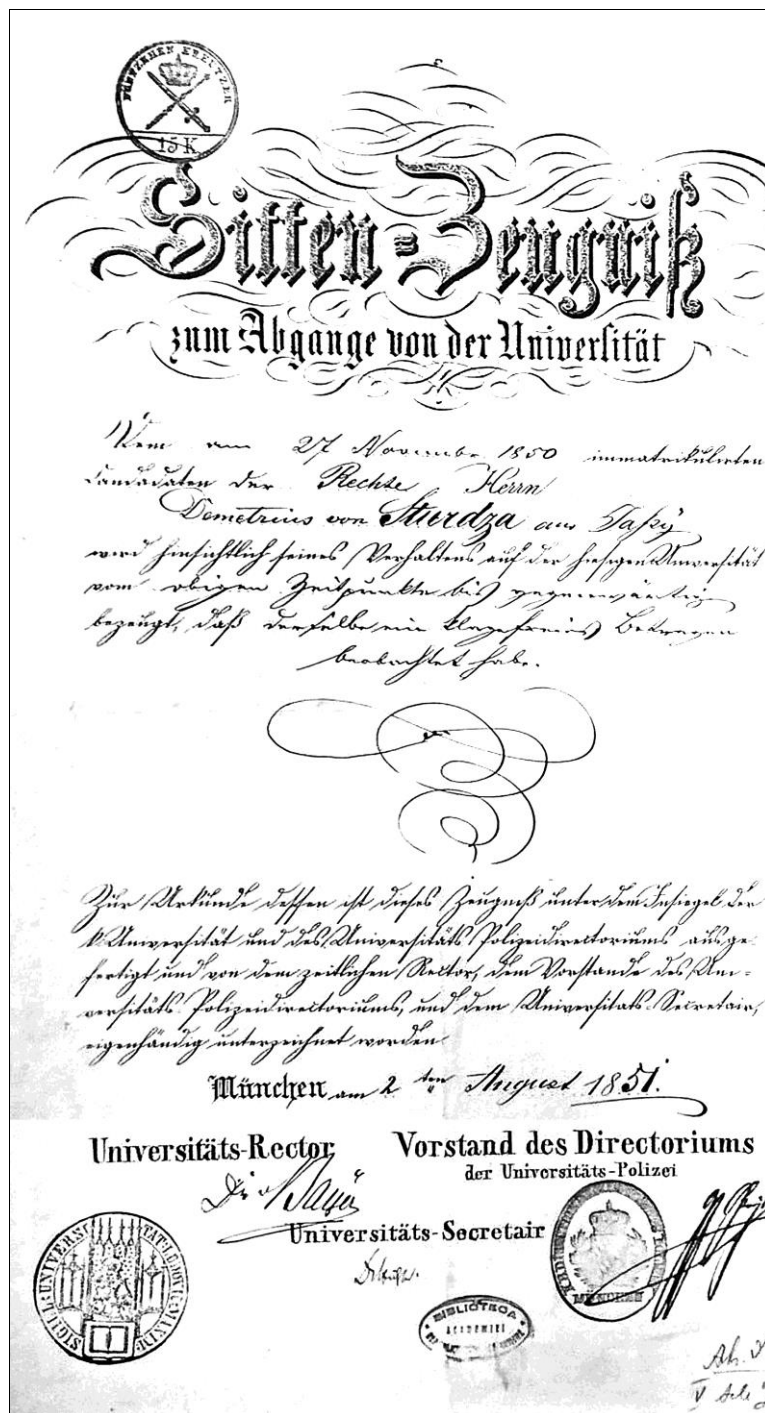 FÜNFZEHEN KREUTZER
15 K
Sitten=Zeugniß
zum Abgange von der Universität
Dem am 27 November 1850 immatrikulirten
Candidaten der Rechte Herrn
Demetrius von Sturdza aus Jaßy
wird hinsichtlich seines Verhaltens auf der hiesigen Universität
vom obigen Zeitpunkte bis gegenwärtig
bezeugt, daß derselbe ein klagefreies Betragen
beobachtet habe.
Zur Urkunde dessen ist dieses Zeugniß unter dem Insiegel der
k. Universität und des Universitäts Polizeidirectoriums ausge-
fertigt und von dem zeitlichen Rector, dem Vorstande des Uni-
versitäts Polizeidirectoriums, und dem Universitats-Secretair,
eigenhändig unterzeichnet worden.
München am 2ten August 1851.
Universitäts-Rector Vorstand des Directoriums
der Universitäts-Polizei
Dr
Universitäts-Secretair
SIGILL: UNIVERSITAT: LUDOV:
MÜNCHEN
BIBLIOTECA
ACADEMIEI